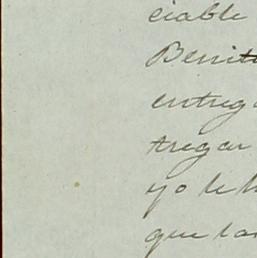 ciable
Benit
entreg
tregar
yo le h
que la